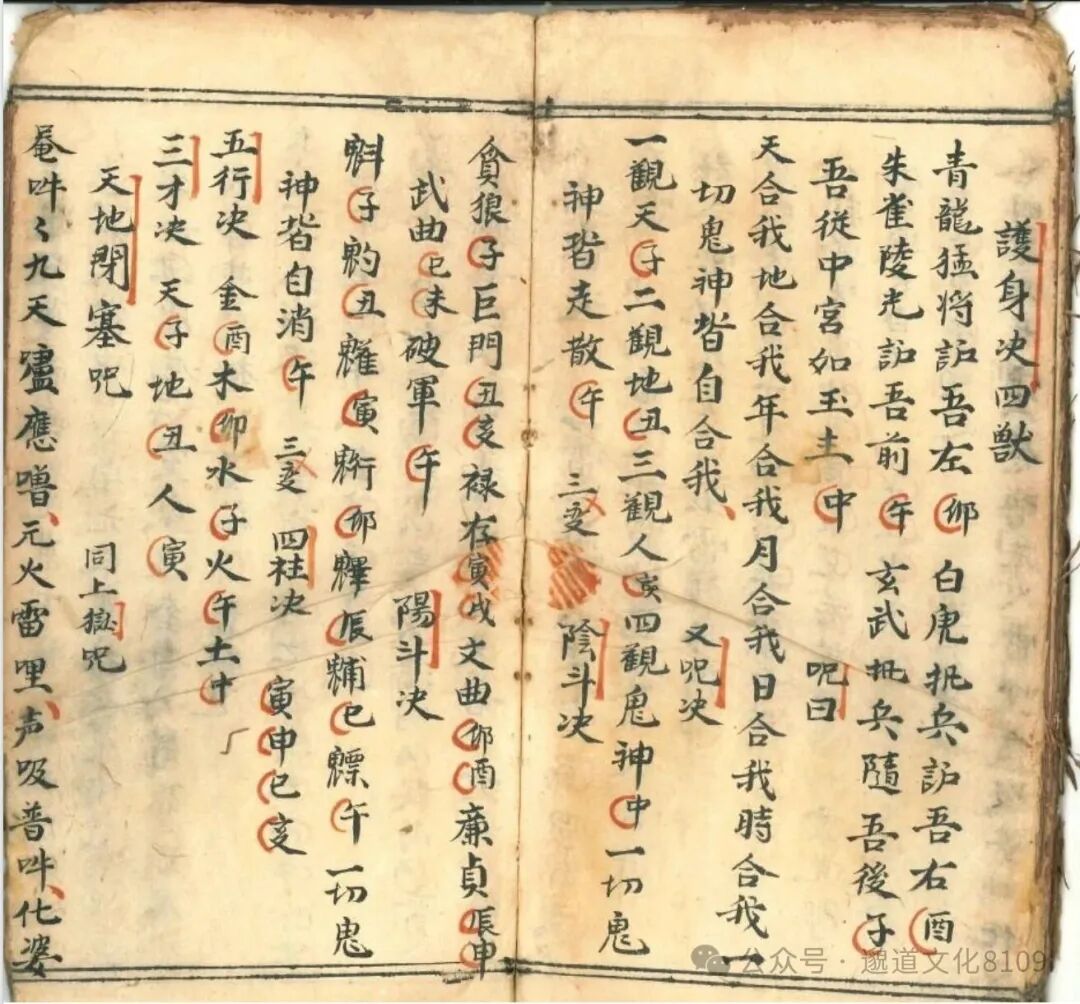 護身决四獸
青龍猛将吾左卯 白虎兵吾右酉
朱雀陵光吾前午 玄武兵隨吾後子
吾從中宮如玉土中 呪曰
天合我地合我年合我月合我日合我時合我一
切鬼神皆自合我、 又呪决
一觀天子二觀地丑三觀人亥四觀鬼神中一切鬼
神皆走散午 三变 陰斗决
貪狼子巨門丑亥禄存寅戌文曲卯酉亷貞辰申
武曲巳未破軍午 陽斗决
魁子丑寅卯辰巳魒午一切鬼
神皆自消午 三变 四柱决 寅申巳亥
五行决 金酉木卯水子火午土中
三才决 天子地丑人寅
天地閉塞呪 同上嶽呪
菴吽〻九天嚧應嚕、元火雷哩、声吸普吽、化婆
公众号·邈道文化8109